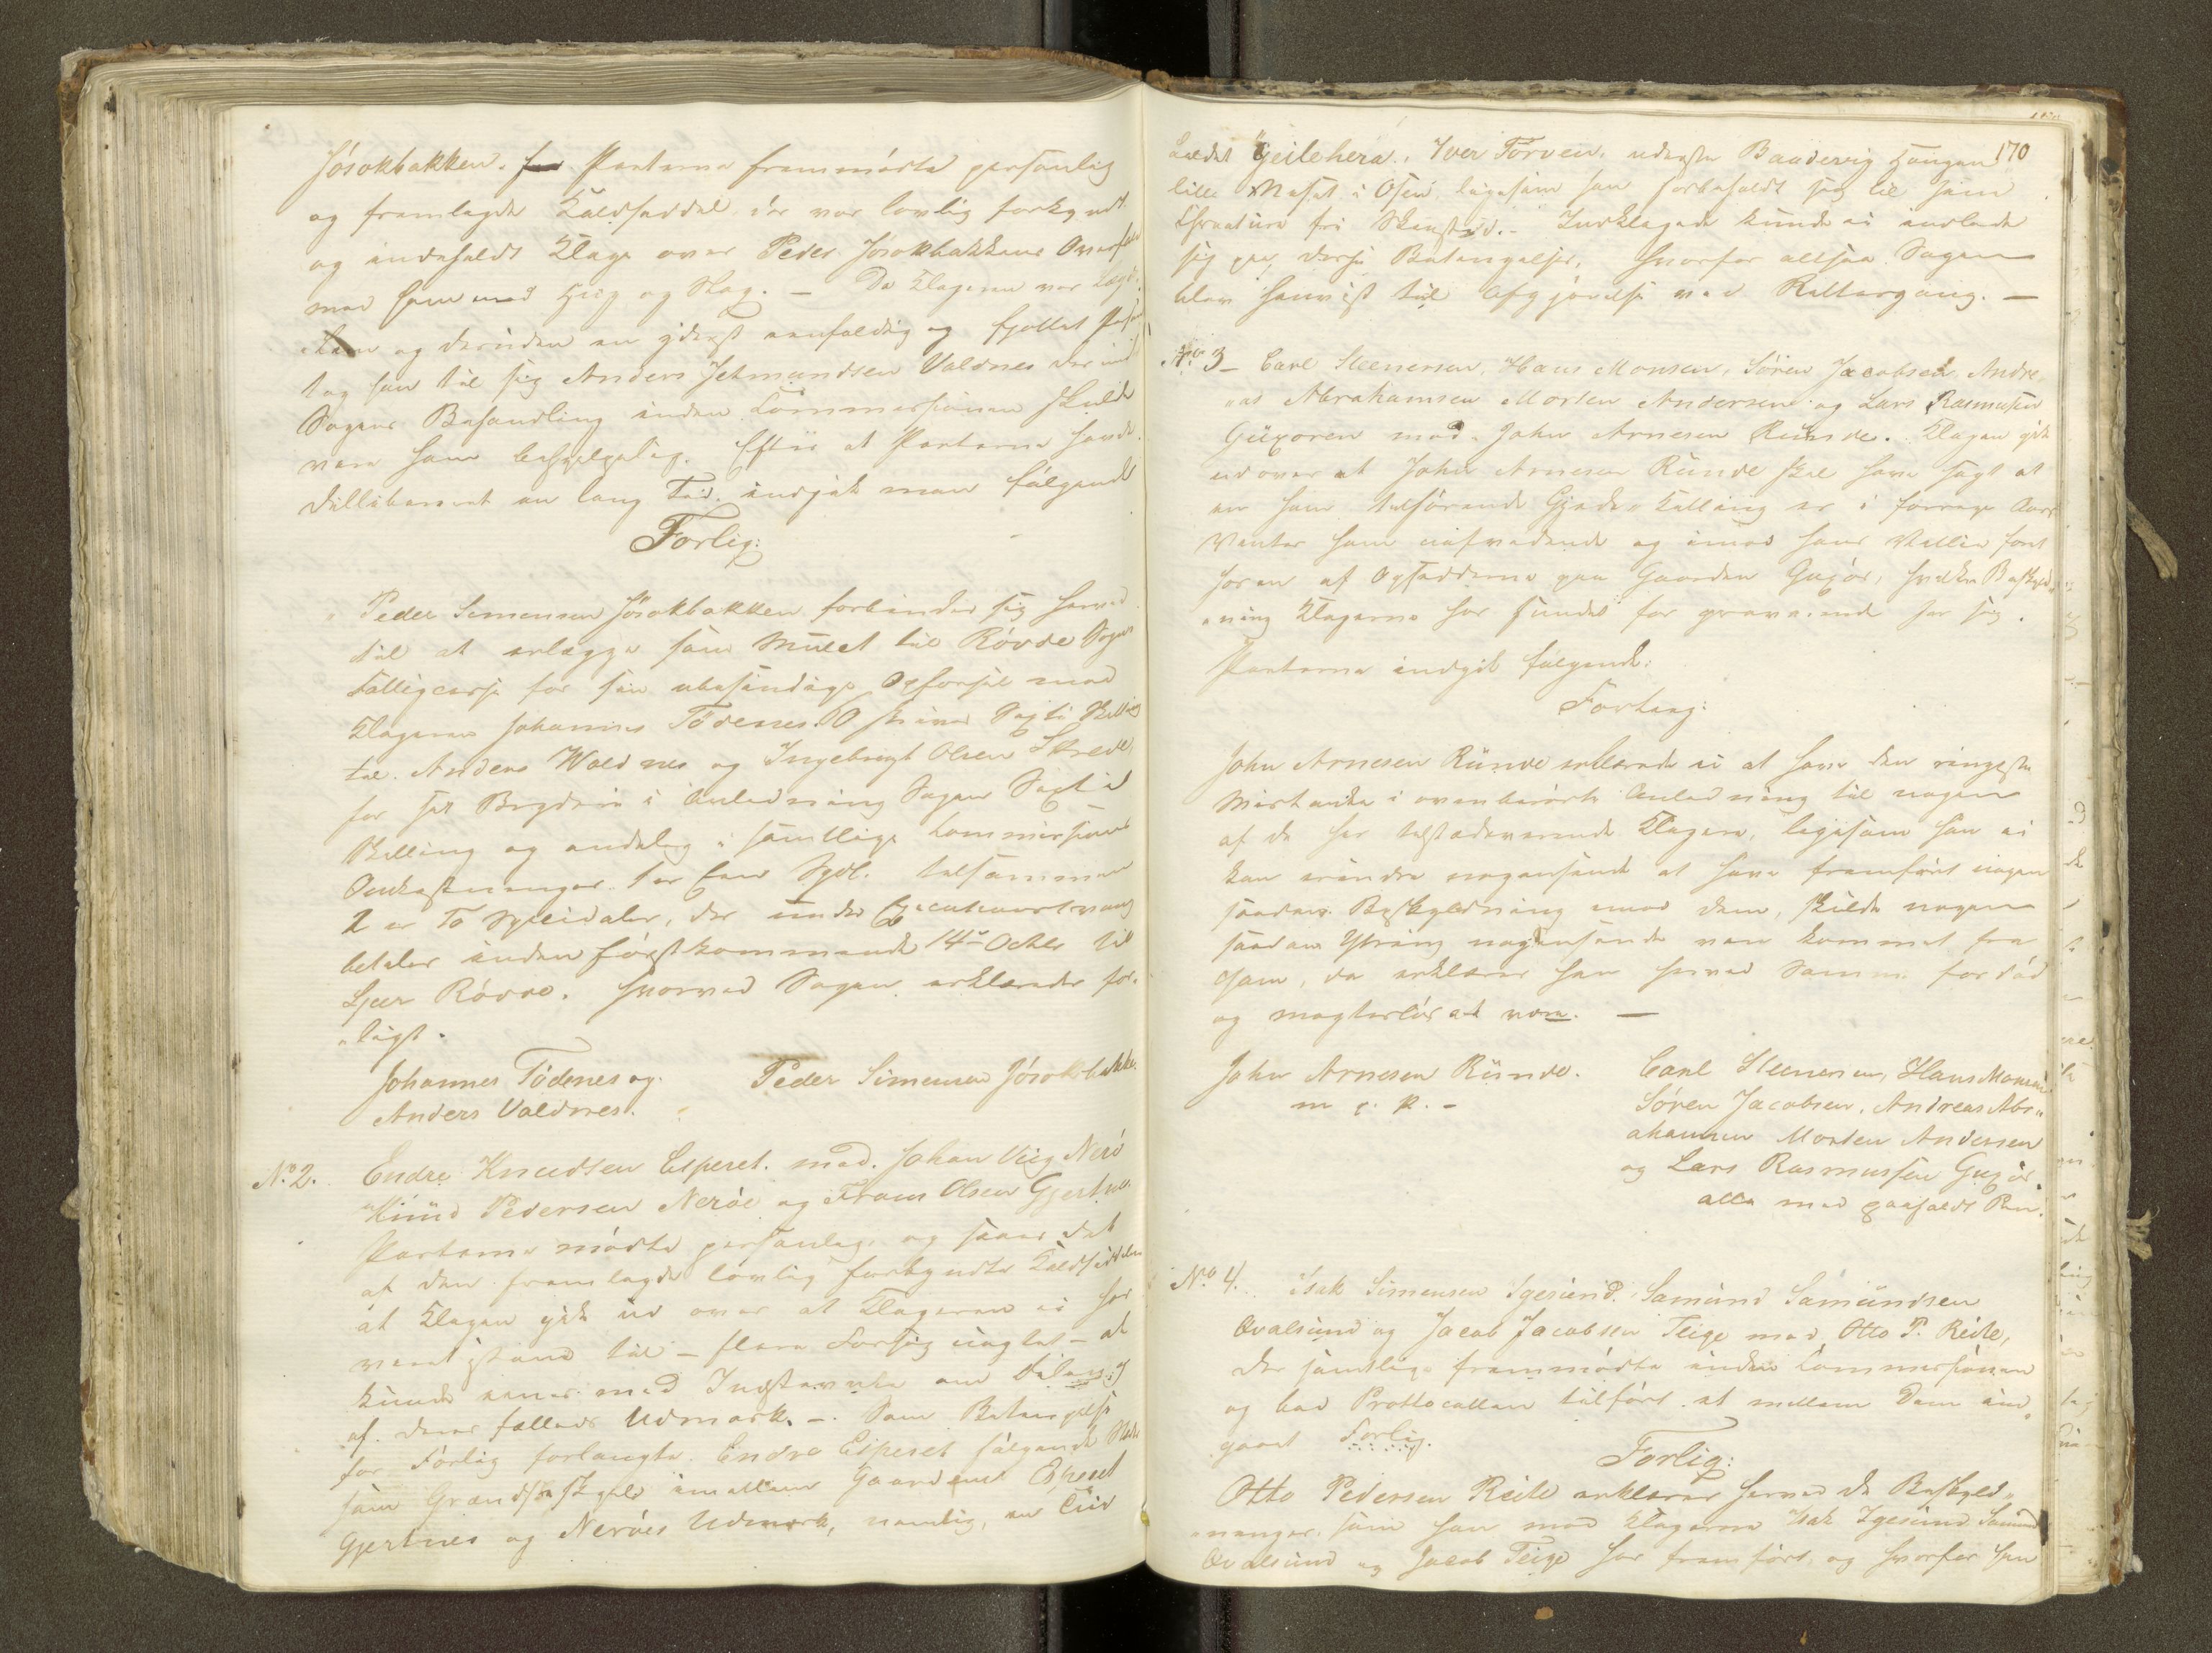 Jósokbakken. Parterne fremmødte personlig
og fremlagde Kaldseddel der var lovlig forkyndt
og indeholdt Klage over Peder Jósokbakkens Overfald
mod ham med Hug og Slag. — Da Klageren var Lægds-
Lem og desuden en yderst eenfoldig og fjollet Person
tog han til sig Anders Jetmundsen Valdnes der ved
Sagens Behandling inden Commissionen skulde
være ham behjelpelig. Efter at Parterne havde
dilliberert en lang Tid, indgik man følgende
Forlig:
Peder Simensen Jósokbakken forbinder sig herved
til at erlægge som Mulct til Róvde Sogns
Fattigcasse for sin ubesindige Opførsel mod
Klageren Johannes Tódenes 60 skriver Sexti Skilling
til Anders Waldnes og Ingebrigt Olsen Strede
for sit Bryderi i Anledning Sagen Sexti
Skilling og endelig i samtlige Commissions
Omkostninger 1 er Een Spdl. tilsammen
2 er To Speciedaler, der under Executionstvang
betales inden førstkommende 14de Octbr til
Róvde. Hvorved Sagen erklæredes for-
ligt.
Johannes Tódenes og Peder Simensen Jósokbakken
Anders Valdnes.
No. 2. Endre Knudsen Espeset mod Johan Viig Neró
Knud Pedersen Neróe og Frans Olsen Gjertnes.
Parterne mødte personlig og saaes det
af den fremlagde lovlig forkyndte Kaldseddel
at Klagen gik ud over at Klageren ei har
været istand til — flere Forsøg uagtet — at
kunde enes med Indstevnte om Deling
af deres fælleds Udmark. — Som Betingelse
for Forlig forlangte Endre Espeset følgende Steder
som Grændseskjæl imellem Gaardene Espeset
Gjertnes og Neróes Udmark, nemlig, en Tue
kaldet Geilehera, Iver Torven, nederste Baadevig Haugen 170
lille i Osen ligesom han forbeholdt sig til sin
fri. — Indklagede kunde ei indlade
sig paa disse Betingelser, hvorfor altsaa Sagen
blev henvist til Afgjørelse ved Rettergang. —
No. 3 — Carl Steenersen, Hans Monsen, Søren Jacobsen Andre-
as Abrahamsen Morten Andersen og Lars Rasmusen
Guxoren mod John Arnesen Runde. Klagen gik
ud over at John Arnesen Runde skal have sagt at
en ham tilhørende Gjede-Killing er i forrige Aars
Vinter ham uafvidende og imod hans Villie fort
af Opsidderne paa Gaarden Guxór, hvilken Beskyld-
ning Klagerne har fundet for graverende for sig.
Parterne indgik følgende:
Forlig:
John Arnesen Runde erklærede ei at have den ringeste
Mistanke i ovenberørte Anledning til nogen
af de her tilstedeværende Klagere, ligesom han ei
kan erindre nogensinde at have fremført nogen
saadan Beskyldning mod dem, skulde nogen
saadan Ytring nogensinde være kommet fra
ham, da erklærer han herved samme for død
og magtesløs at være. —
John Arnesen Runde. Carl Steenersen, Hans Monsen
m. p. P. — Søren Jacobsen, Andreas Abr-
ahamsen Morten Andersen
og Lars Rasmussen Guxór.
alle med paaholdt Pen.
No. 4. Isak Simensen Igesund, Samund Samundsen
Qvalsund og Jacob Jacobsen Teige mod Otto P. Reite,
der samtlige fremmødte inden Commissionen
og bad Prottocollen tilført at mellem Dem ind-
gaaet Forlig.
Forlig:
Otto Pedersen Reite erklærer herved de Beskyld-
ninger som han mod Klagerne Isak Igesund Samund
Qvalsund og Jacob Teige har fremført og hvorfor han